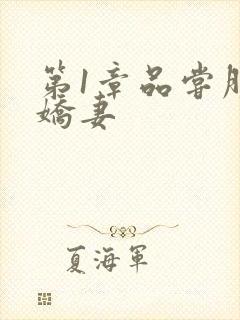 第1章品嘗
嬌妻
夏海軍